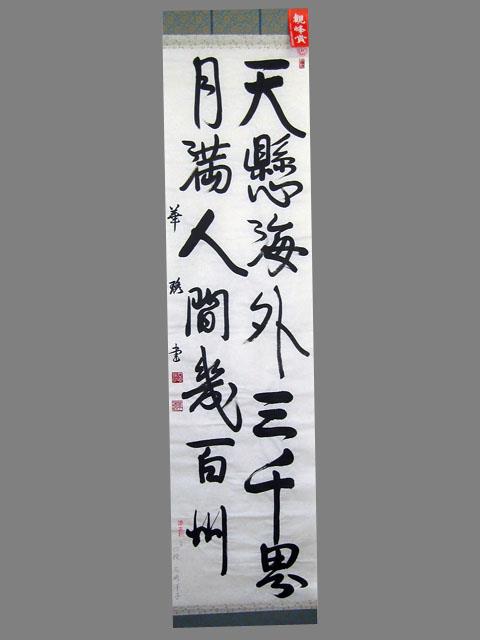 天懸海外三千界
月満人間幾百州
華
書
観峰賞